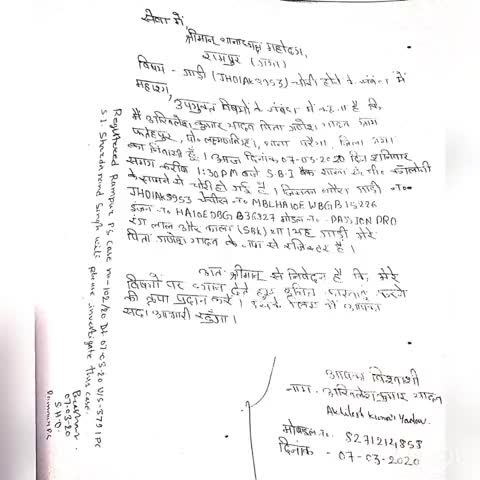 सेवा में,
श्रीमान् थानाध्यक्ष महोदय,
रामपुर (गया)
विषय - गाड़ी (JH01AK9953) चोरी होने के संबंध में
महाशय,
उपर्युक्त विषयों के संबंध में कहना है कि,
मैं अखिलेश कुमार यादव पिता यादव ग्राम
फतेहपुर, पो० थाना जिला गया
का निवासी हूँ। आज दिनांक 07-03-2020 दिन शनिवार
समय करीब 1:30 PM को S.B.I बैंक
के सामने से चोरी हो गई है। जिसका गाड़ी -No
JH01AK9953 चेचिस -No MBLHA10EWBGB15226
इंजन -No HA10EDBGB36327 मॉडल -No - PASSION PRO
रंग लाल और काला (SBK) था। यह गाड़ी मेरे
पिता यादव के नाम से रजिस्टर है।
अतः श्रीमान् से निवेदन है कि, मेरे
विषयों पर ध्यान देते हुए उचित करने
की कृपा प्रदान करें। इसके लिए मैं आपका
सदा आभारी रहूँगा।
आपका विश्वासी
नाम - अखिलेश कुमार यादव
Akhilesh Kumar Yadav
मोबाइल No. 8271214858
दिनांक - 07-03-2020
Registered Rampur PS case no-102/20 Dt 07-03-20 U/S-379 IPC
S.I. Singh will please investigate this case.
07-03-20
S.H.O.
Rampur PS